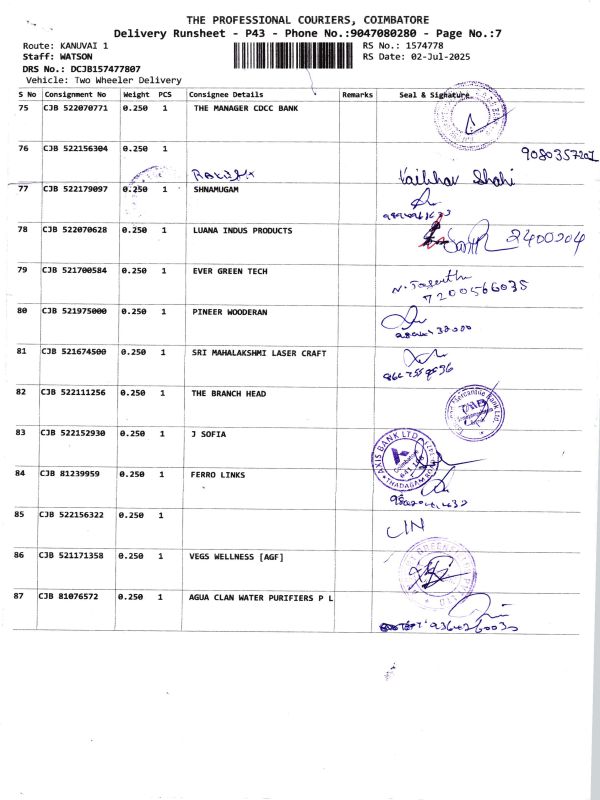 THE PROFESSIONAL COURIERS, COIMBATORE
Delivery Runsheet - P43 - Phone No.:9047080280 - Page No.:7
Route: KANUVAI 1
Staff: WATSON
DRS No.: DCJB157477807
Vehicle: Two Wheeler Delivery
RS No.: 1574778
RS Date: 02-Jul-2025
S No Consignment No Weight PCS Consignee Details Remarks Seal & Signature
75 CJB 522070771 0.250 1 THE MANAGER CDCC BANK
76 CJB 522156304 0.250 1
9080357201
Vaibhav Shahi
77 CJB 522179097 0.250 1 SHNAMUGAM
78 CJB 522070628 0.250 1 LUANA INDUS PRODUCTS
2400204
79 CJB 521700584 0.250 1 EVER GREEN TECH
7200566035
80 CJB 521975000 0.250 1 PINEER WOODERAN
81 CJB 521674500 0.250 1 SRI MAHALAKSHMI LASER CRAFT
82 CJB 522111256 0.250 1 THE BRANCH HEAD
TMB
83 CJB 522152930 0.250 1 J SOFIA
AXIS BANK LTD
Coimbatore
THADAGAM ROAD
84 CJB 81239959 0.250 1 FERRO LINKS
85 CJB 522156322 0.250 1
86 CJB 521171358 0.250 1 VEGS WELLNESS [AGF]
87 CJB 81076572 0.250 1 AGUA CLAN WATER PURIFIERS P L